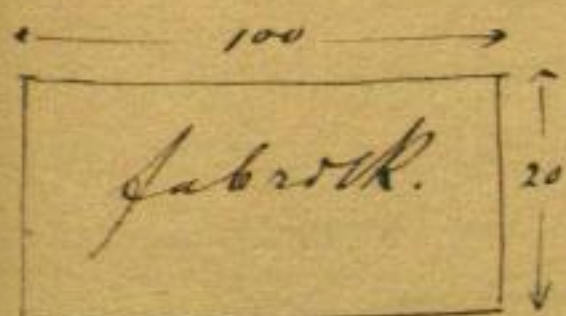 100
fabriek.
20